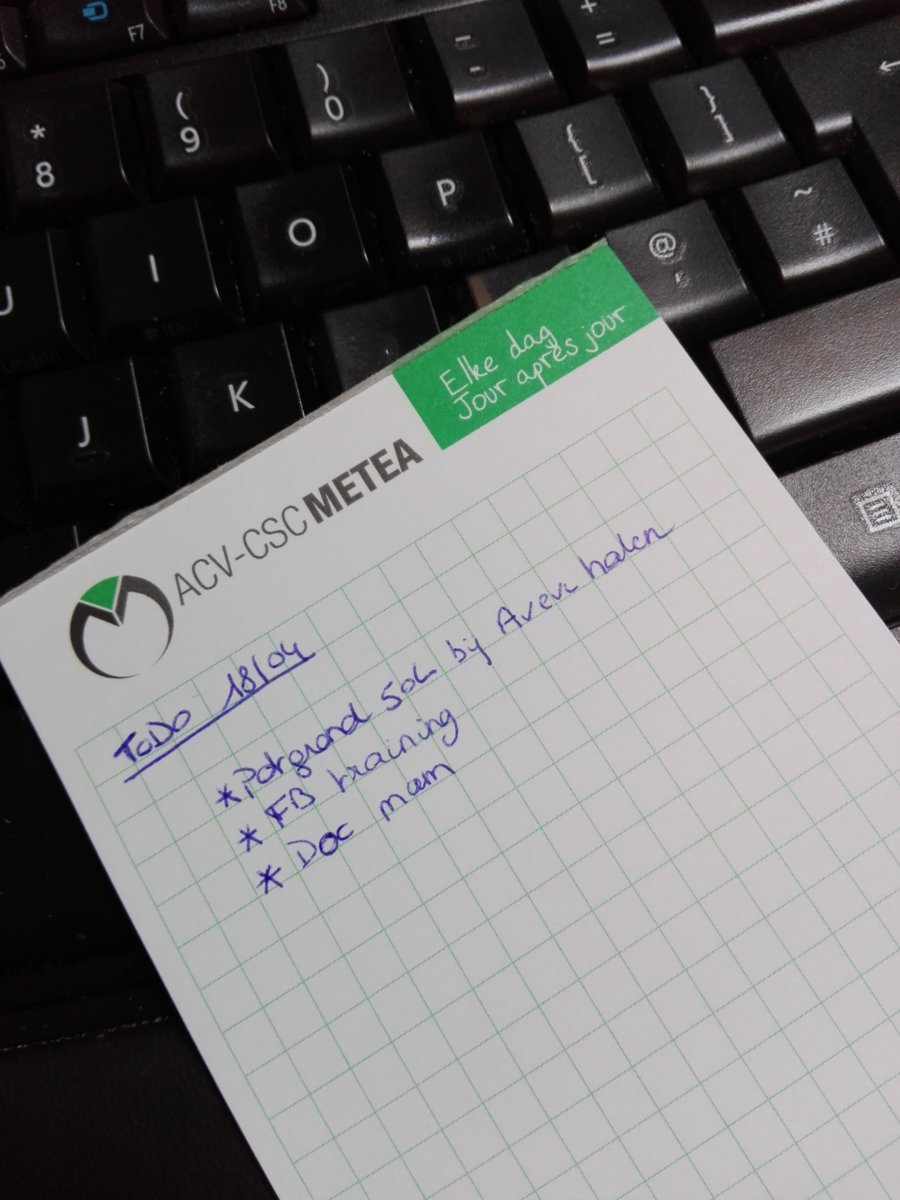 F7
F8
* 8
( 9
) 0
- -
+ =
U
I
O
P
{ [
} ]
J
K
@ '
~ #
Elke dag
Jour après jour
ACV-CSC METEA
ToDo 18/04
* Potgrond 50L bij Aveve halen
* FB training
* Doc mam